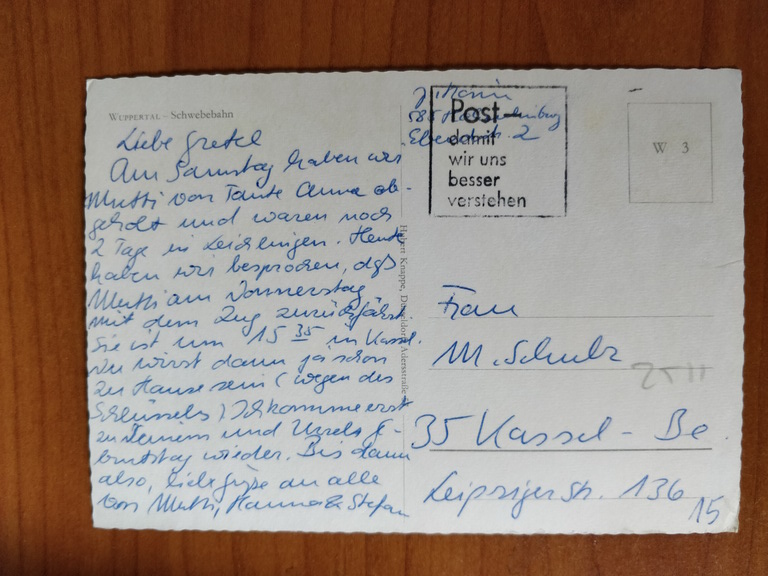 WUPPERTAL – Schwebebahn
Liebe Gretel
Am Samstag haben wir
Mutti von Tante Anna ab-
geholt und waren noch
2 Tage in Leichlingen. Heute
haben wir besprochen, daß
Mutti am Donnerstag
mit dem Zug zurückfährt.
Sie ist um 15 35 in Kassel.
Du wirst dann ja schon
zu Hause sein (wegen des
Schlüssels) Ich komme erst
zu Deinem und Ursels Ge-
burtstag wieder. Bis dann
also, liebe Grüße an alle
von Mutti, Hanna & Stefan
Robert Knappe, Düsseldorf, Adersstraße
585
2
Post
damit
wir uns
besser
verstehen
W 3
Frau
M. Schulz
35 Kassel - Be
Leipzigerstr. 136
15